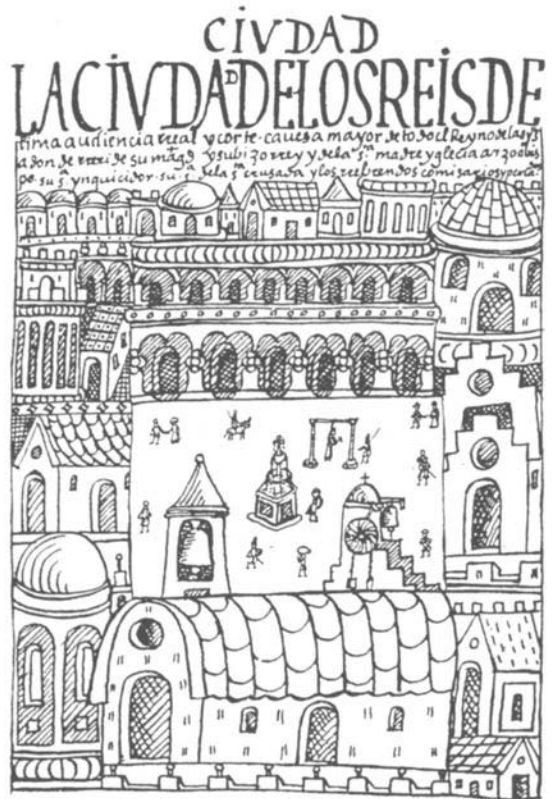 CIVDAD
LA CIVDAD DE LOS REIS DE
lima audiencia rreal y corte· cauesa mayor de todo el Reyno de las yͣs
a don de rrecide su magᵈ y su bizorrey y de la sͣ madre yglecia arzobis
po· su sͣ ynquicidor· su sͣ de la sͣ crusada y los rreberendos comizarios y perlaᵈˢ